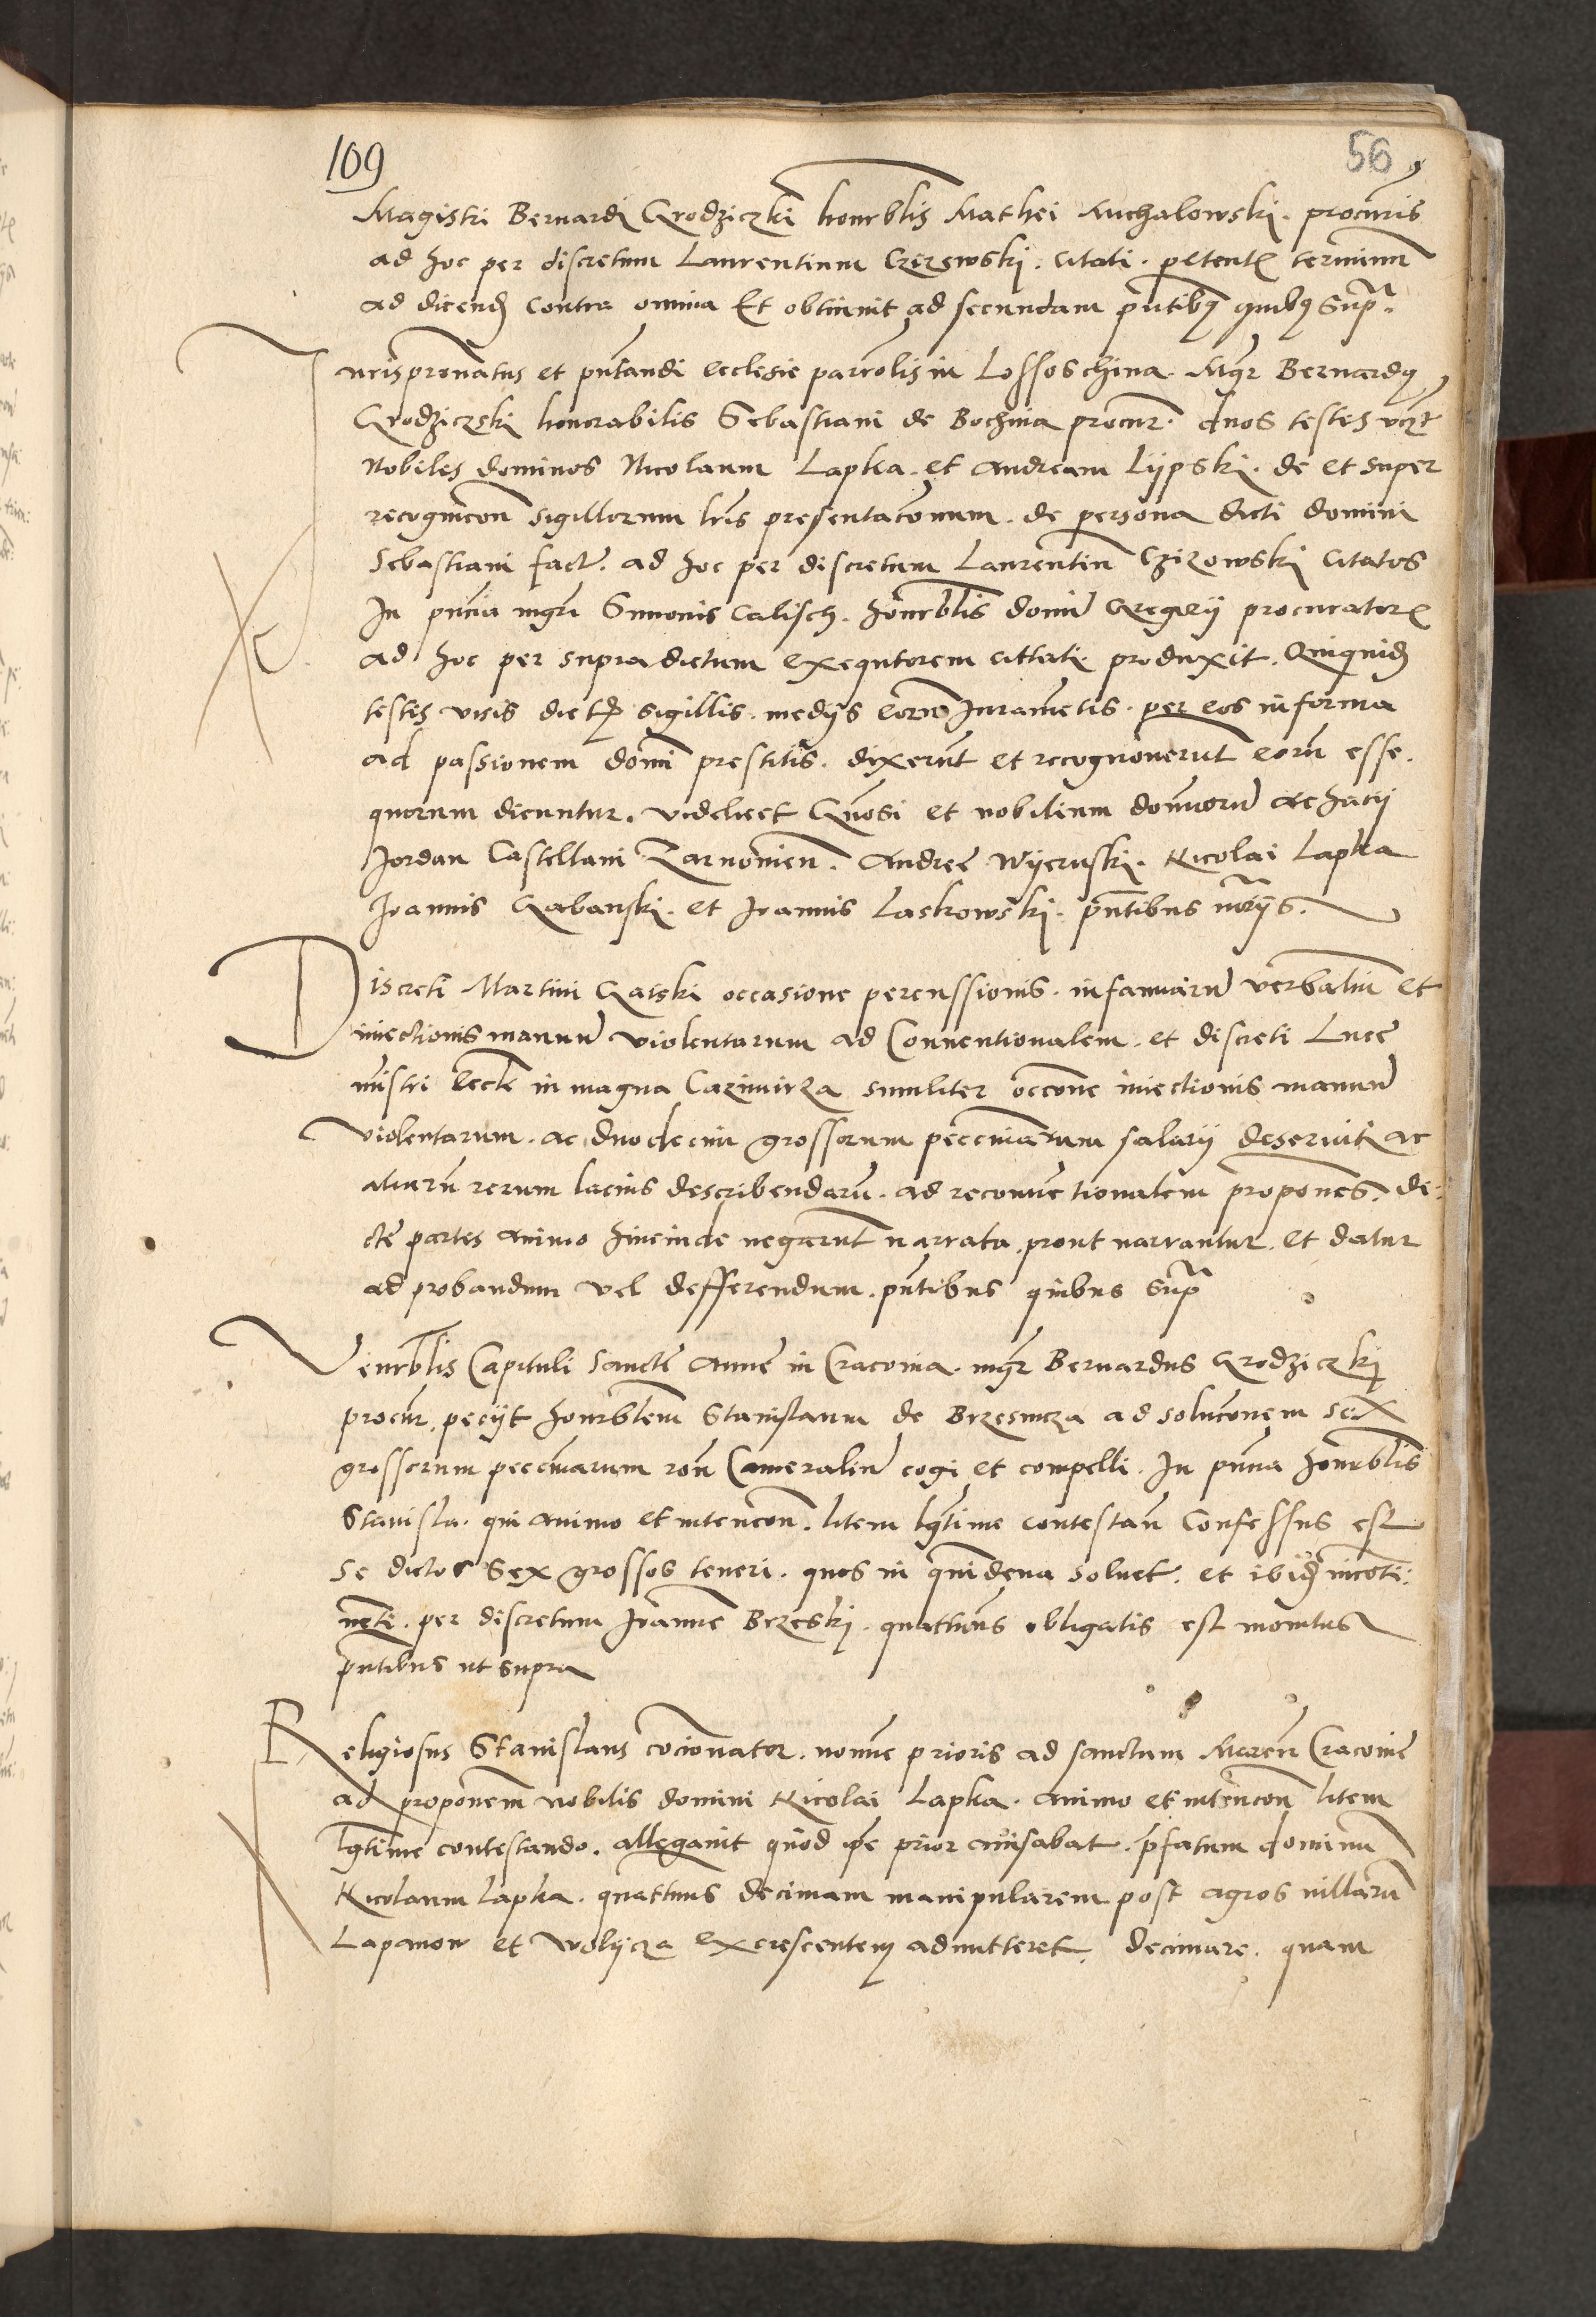 109
56
Magistri Bernardi Grodziczki honrblis Mathei Michalowski. procuris
ad hoc per discretum Laurentium Czirzowski. citati. petente terminum
ad dicend contra omnia Et obtinuit ad secundam pntibq quibq Supra.
Jurispronatus et pntandi ecclesie parrolis in Lossoschina. Mgr Bernardq
Grodziczski honorabilis Sebastiani de Bochnia procur. duos testes vczt
Nobiles dominos Nicolaum Lapka. et Andream Lijpski. de et super
recognicon sigillorum lris presentaconum. de persona dicti domini
Sebastiani fact. ad hoc per discretum Laurentiu Czizowski citatos
In pnia mgri Simonis Calisch. honrblis domi Gregorij procuratore
ad hoc per supradictum exequtorem cittati. produxit. Quiquid
testes visis dictz sigillis. medijs eorum Juramentis. per eos in forma
ad passionem domi prestitis. dixerunt et recognouerut eoru esse.
quorum dicuntur. videlicet Gnosi et nobilium domiorum Achacij
Jordan Castellani Zarnowien. Andree Wijeruski. Nicolai Lapka
Joannis Grabanski. et Joannis Laskowski. pntibus notrijs.
Discreti Martini Gaiski occasione percussionis. infamiaru verbaliu et
iniectionis manuu violentarum ad Conuentionalem. et discreti Luce
mistri eccle in magna Cazimirza similiter occone iniectionis manuu
violentarum. ac duodecim grossorum pecuniarum salarij deseruiti ac
aliaru rerum lacius describendaru. ad reconuentionalem propones. de-
cte partes animo hincinde negarunt narrata prout narrantur. et datur
ad probandum vel defferendum. pntibus quibus Supra
Venrblis Capituli Sancte Anne in Cracouia. mgr Bernardus Grodziczki
procur. pecijt honrblem Stanislaum de Brzesnicza ad soluconem sex
grossorum pecuniarum ron Cameraliu cogi et compelli. In pnia honrblis
Stanisla. qui animo et intencon. litem lgtime contestan Confessus est
se dictos Sex grossos teneri. quos in quindena soluet. et ibid incoti-
neti. per discretum Joanne Brzeski. quattuns obligatis est monitus
pntibus ut supra
Religiosus Stanislaus cocionator. nomie prioris ad sanctum Marcu Cracouie
ad proponem nobilis domini Nicolai Lapka. animo et intencon litem
lgtime contestando. allegauit quod ipe prior auisabat. pfatum dominu
Nicolaum Lapka. quattinus decimam manipularem post agros villaru
Lapanow et Wolijcza excrescentem admitteret. decimare. quam